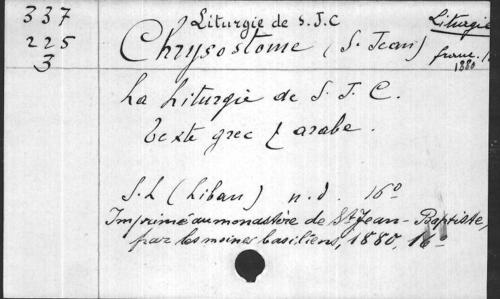 337
225
3
Liturgie de S. J. C
Chrysostome (S. Jean)
Liturgie
franc.
1880
La Liturgie de S. J. C.
Texte grec & arabe.
S. L (Liban) n. d. 16°
Imprimé au monastère de St Jean-Baptiste,
par les moines basiliens, 1880, 16°